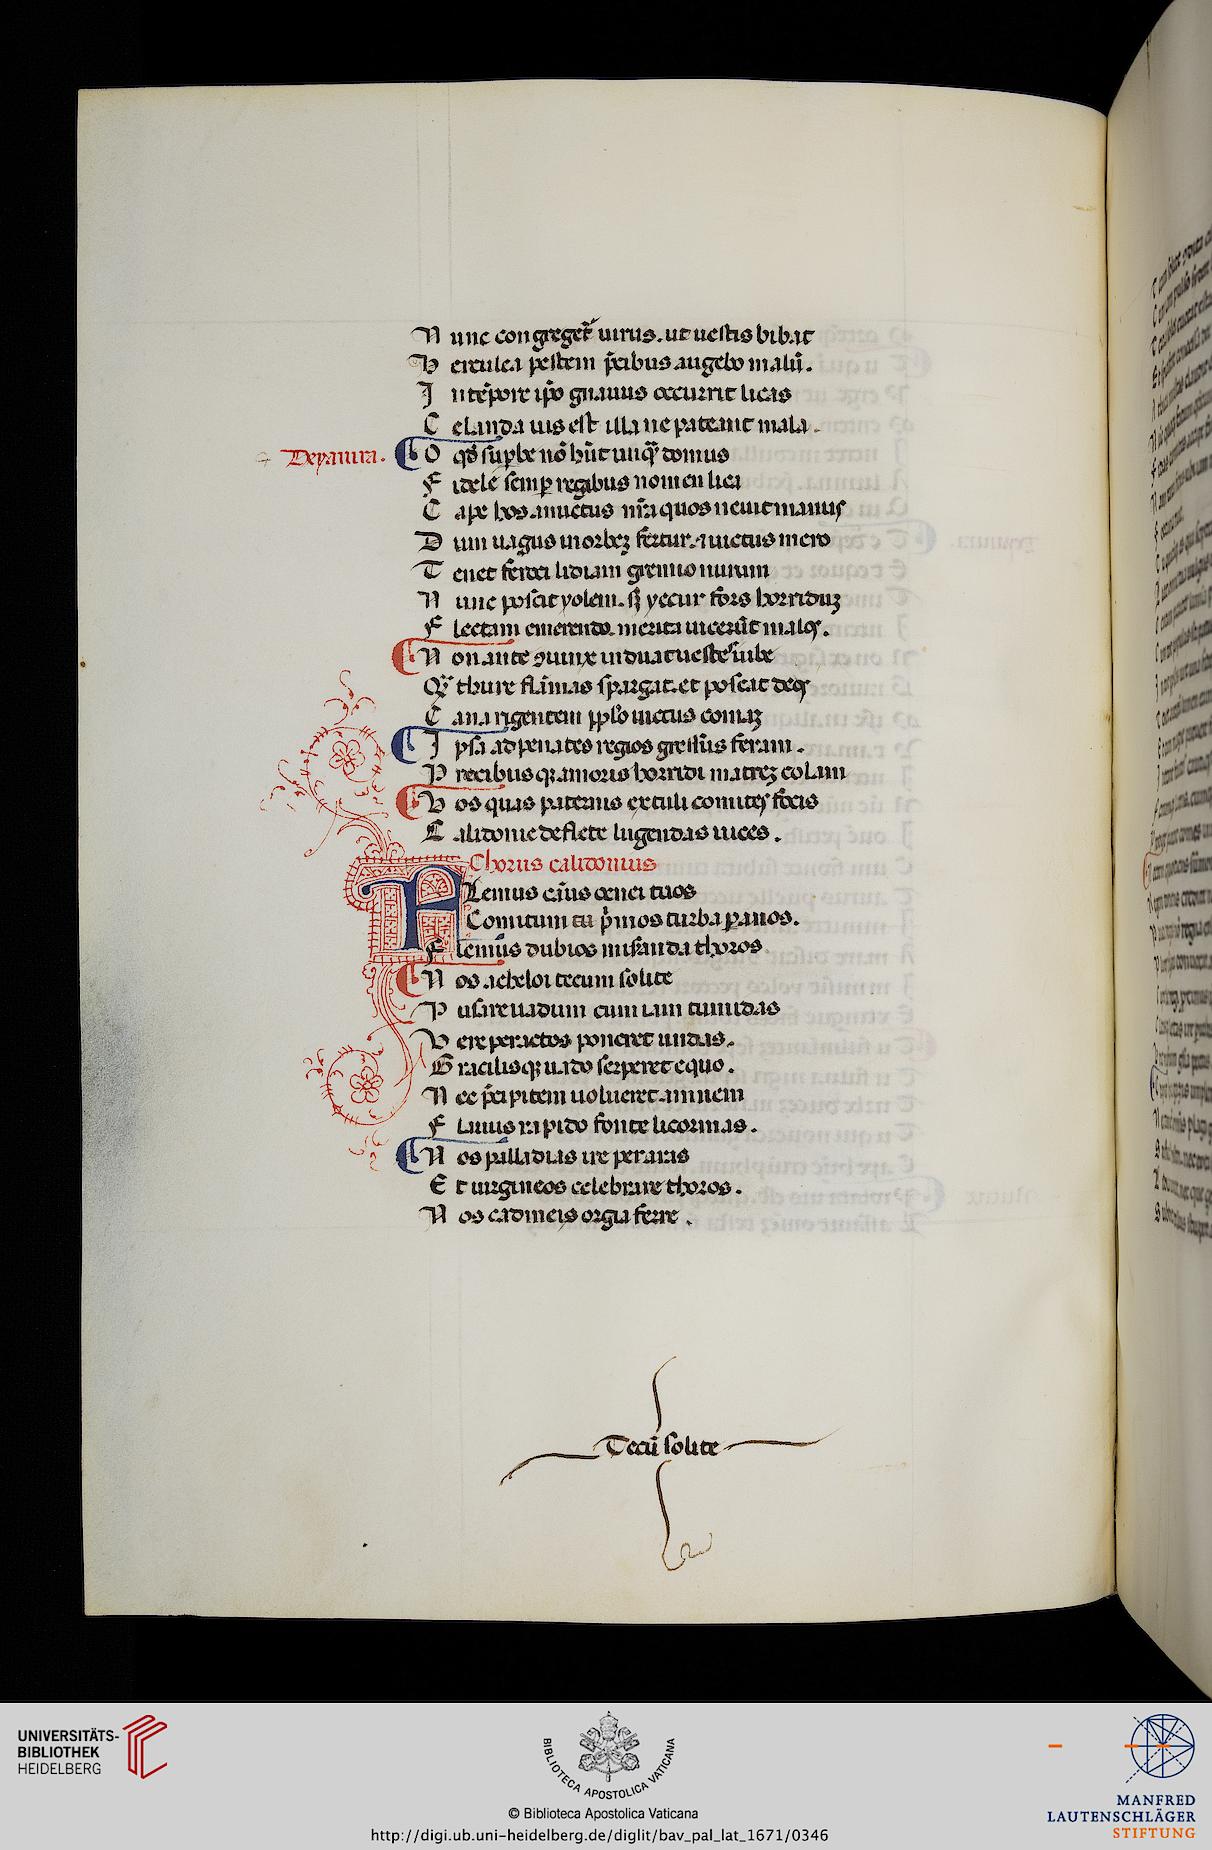 N unc congreget᷑ uirus. ut uestis bibat
H erculea pestem p̄cibus augebo malū.
I n tēpore ip̄o gnauus occurrit licas
C elanda uis est illa ne pateant mala.
Deyanira. O qd̄ suꝑbe nō hn̄t unq̄ domus
F idele semꝑ regibus nomen lica
C ape hos amictus nr̄a quos neuit manus
D um uagus in orbeꝫ fertur. ⁊ uictus mero
T enet feroci lidiam gremio nurum
N unc poscit yolem. sꝫ yecur fors horriduꝫ
F lectam emerendo. merita uicerūt malos.
N on ante ꝯiunx induat uestes iube
Qꝫ thure flāmas spargat. et poscat deos
C ana rigentem pplo uictus comaꝫ
I psa ad penates regios gressus feram.
P recibusqꝫ amoris horridi matreꝫ colam
V os quas paternis extuli comites focis
C alidonie deflete lugendas uices.
Chorus calidonius
Flemus casus oenei tuos
Comitum tu p̄mos turba ꝑ annos.
F lemus dubios misanda thoros
N os acheloi tecum solite
P ulsare uadum cum iam tumidas
V ere peractos poneret undas.
G racilisqꝫ uado serperet equo.
N ec p̄cipitem uolueret amnem
F lauus rapido fonte licormas.
N os palladias ire per aras
E t uirgineos celebrare thoros.
N os cadmeis orgia ferre.
Tecū solite
UNIVERSITÄTS-
BIBLIOTHEK
HEIDELBERG
BIBLIOTECA APOSTOLICA VATICANA
© Biblioteca Apostolica Vaticana
http://digi.ub.uni-heidelberg.de/diglit/bav_pal_lat_1671/0346
MANFRED
LAUTENSCHLÄGER
STIFTUNG